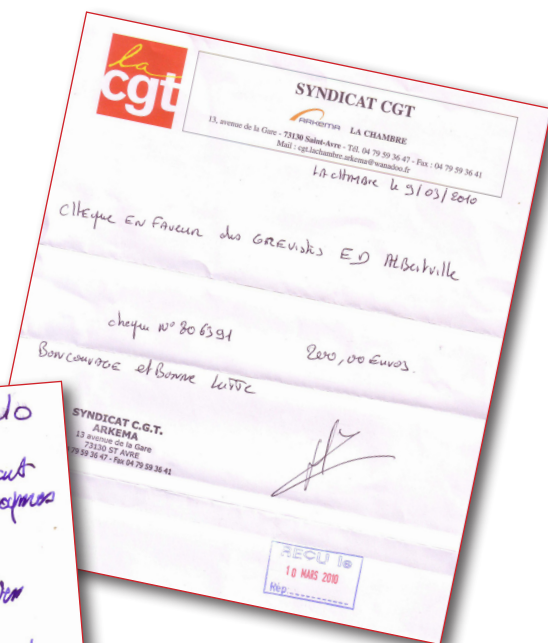 la
cgt
SYNDICAT CGT
ARKEMA LA CHAMBRE
13, avenue de la Gare - 73130 Saint-Avre - Tél. 04 79 59 36 47 - Fax : 04 79 59 36 41
Mail : cgt.lachambre.arkema@wanadoo.fr
LA CHAMBRE le 9/03/2010
CHEque EN FAveur des GREVistes ED AlBertville
cheque N° 306391 200,00 Euros.
BON COURAGE et BONNE LuTTe
SYNDICAT C.G.T.
ARKEMA
13 avenue de la Gare
73130 ST AVRE
79 59 36 47 - Fax 04 79 59 36 41
RECU le
10 MARS 2010
Rép